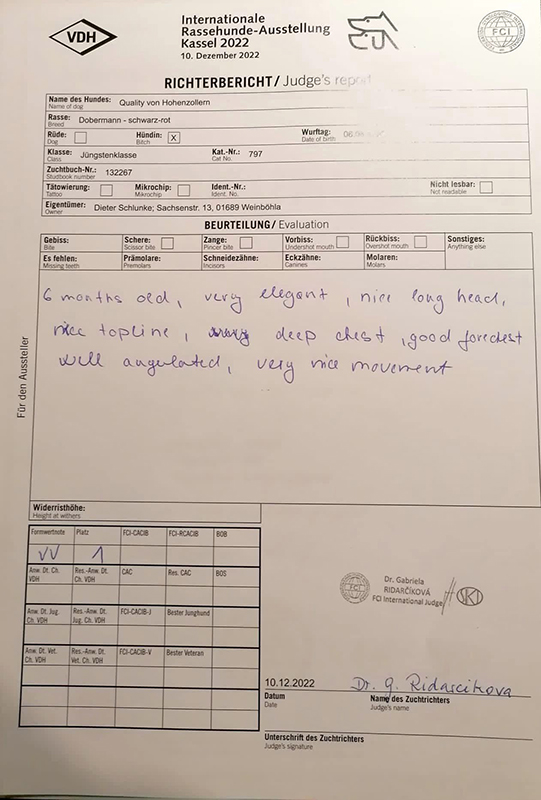 VDH
Internationale
Rassehunde-Ausstellung
Kassel 2022
10. Dezember 2022
FCI
RICHTERBERICHT / Judge's report
Name des Hundes: Quality von Hohenzollern
Name of dog
Rasse: Dobermann - schwarz-rot
Breed
Rüde: Hündin: X Wurftag: 06.
Dog Bitch Date of birth
Klasse: Jüngstenklasse Kat.-Nr.: 797
Class Cat No.
Zuchtbuch-Nr.: 132267
Studbook number
Tätowierung: Mikrochip: Ident.-Nr.: Nicht lesbar:
Tattoo Microchip Ident. No. Not readable
Eigentümer: Dieter Schlunke; Sachsenstr. 13, 01689 Weinböhla
Owner
BEURTEILUNG / Evaluation
Gebiss: Schere: Zange: Vorbiss: Rückbiss: Sonstiges:
Bite Scissor bite Pincer bite Undershot mouth Overshot mouth Anything else
Es fehlen: Prämolare: Schneidezähne: Eckzähne: Molaren:
Missing teeth Premolars Incisors Canines Molars
6 months old, very elegant, nice long head,
nice topline, deep chest, good forechest
well angulated, very nice movement
Für den Aussteller
Widerristhöhe:
Height at withers
Formwertnote Platz FCI-CACIB FCI-RCACIB BOB
VV 1
Anw. Dt. Ch. VDH Res.-Anw. Dt. Ch. VDH CAC Res. CAC BOS
Anw. Dt. Jug. Ch. VDH Res.-Anw. Dt. Jug. Ch. VDH FCI-CACIB-J Bester Junghund
Anw. Dt. Vet. Ch. VDH Res.-Anw. Dt. Vet. Ch. VDH FCI-CACIB-V Bester Veteran
Dr. Gabriela
RIDARČÍKOVÁ
FCI International Judge
SKJ
10.12.2022 Dr. G. Ridarcikova
Datum Name des Zuchtrichters
Date Judge's name
Unterschrift des Zuchtrichters
Judge's signature